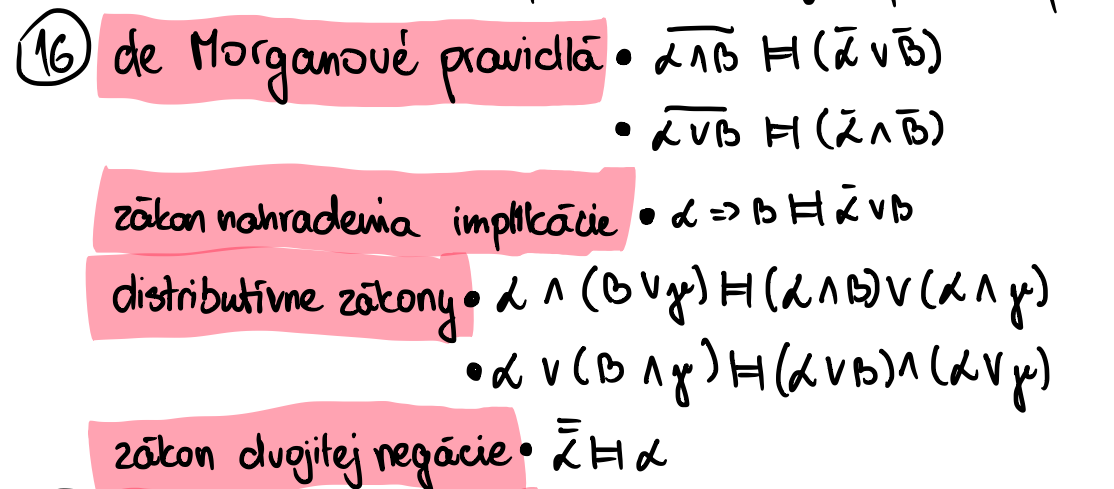 16 de Morganové pravidlá • $\overline{\alpha \wedge \beta}$ ⊨⊣ ($\bar{\alpha}$ ∨ $\bar{\beta}$)
• $\overline{\alpha \vee \beta}$ ⊨⊣ ($\bar{\alpha}$ ∧ $\bar{\beta}$)
zákon nahradenia implikácie • α ⇒ β ⊨⊣ $\bar{\alpha}$ ∨ β
distributívne zákony • α ∧ (β ∨ γ) ⊨⊣ (α ∧ β) ∨ (α ∧ γ)
• α ∨ (β ∧ γ) ⊨⊣ (α ∨ β) ∧ (α ∨ γ)
zákon dvojitej negácie • $\bar{\bar{\alpha}}$ ⊨⊣ α